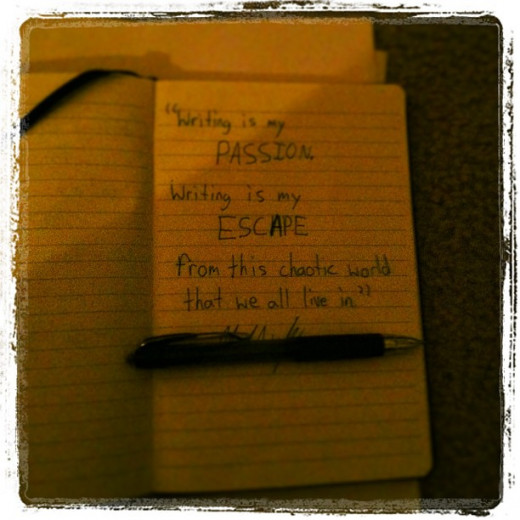 "Writing is my
PASSION.
Writing is my
ESCAPE
from this chaotic world
that we all live in."